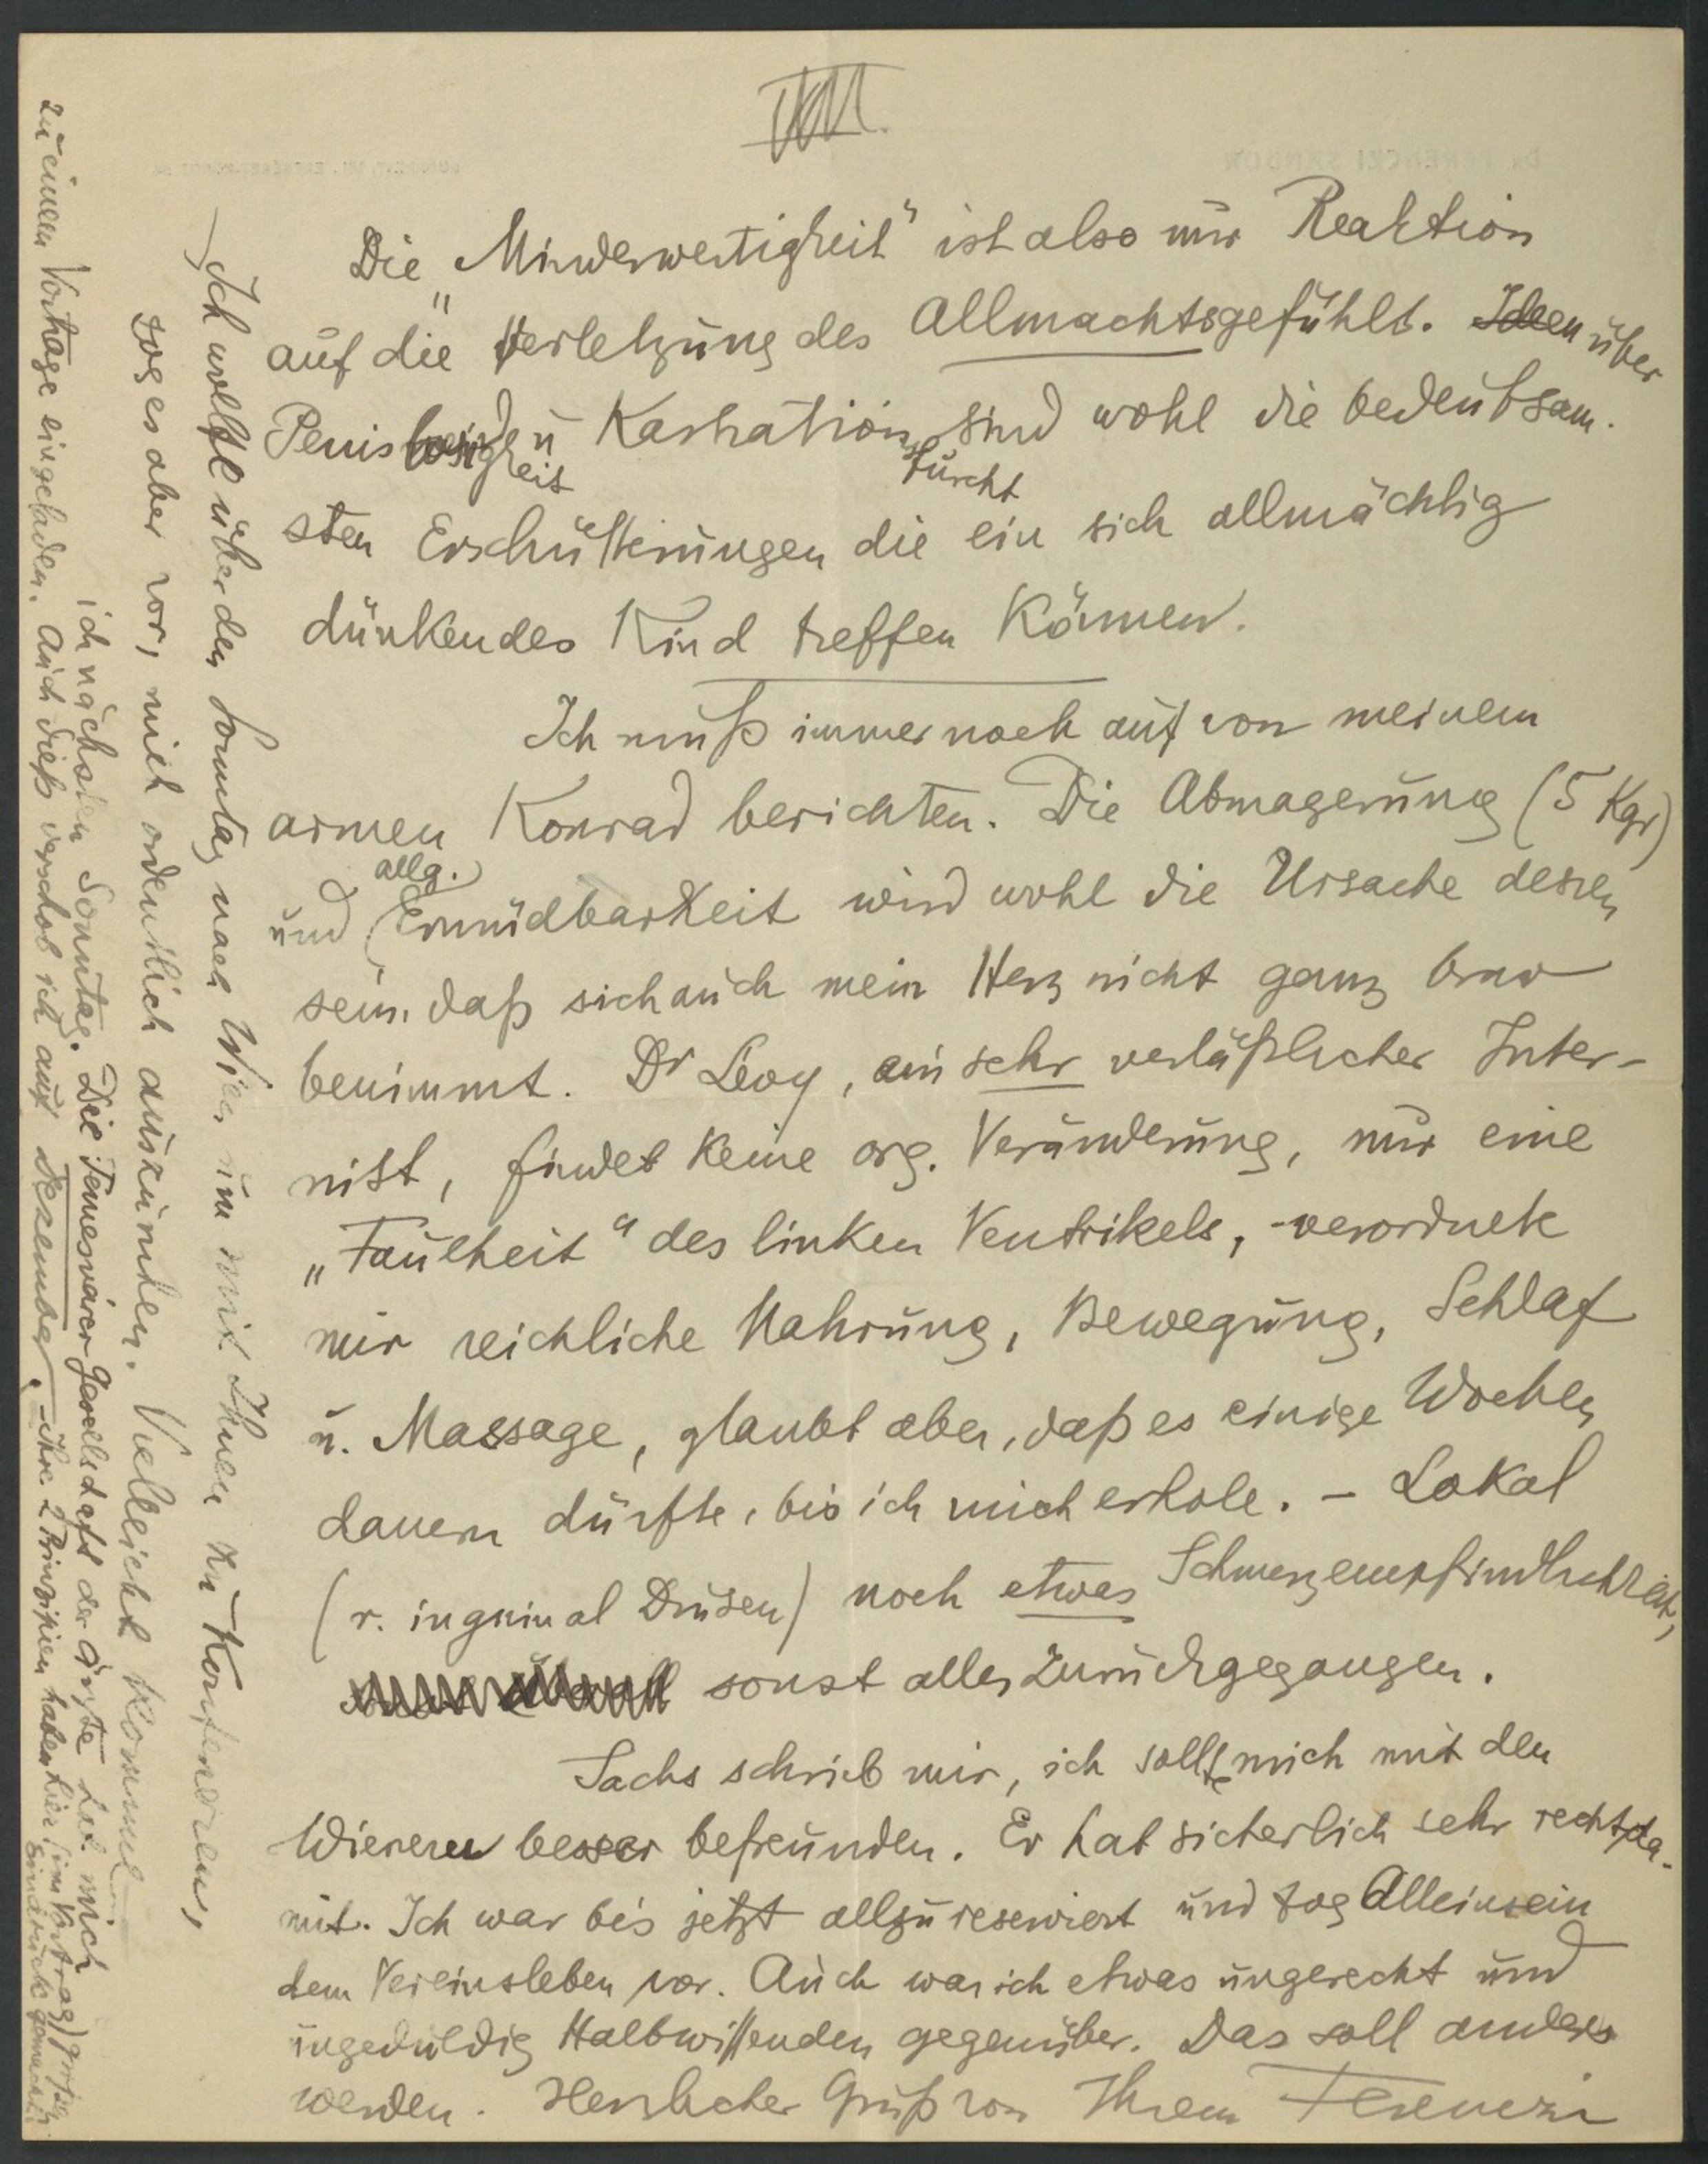 VIII.
Die „Minderwertigkeit“ ist also nur Reaktion
auf die Verletzung des Allmachtsgefühls. Ideen über
Penislosigkeit u Kastrationsfurcht sind wohl die bedeutsam-
sten Erschütterungen die ein sich allmächtig
dünkendes Kind treffen können.
Ich muß immer noch auf von meinem
armen Konrad berichten. Die Abmagerung (5 Kgr)
und allg. Ermüdbarkeit wird wohl die Ursache dessen
sein, daß sich auch mein Herz nicht ganz brav
benimmt. Dr Lévy, ein sehr verläßlicher Inter-
nist, findet keine org. Veränderung, nur eine
„Faulheit“ des linken Ventrikels, - verordnete
mir reichliche Nahrung, Bewegung, Schlaf
u. Massage, glaubt aber, daß es einige Wochen
dauern dürfte, bis ich mich erhole. – Lokal
(r. inguinal Drüsen) noch etwas Schmerzempfindlichkeit,
sonst alles zurückgegangen.
Sachs schrieb mir, ich sollte mich mit den
Wienern besser befreunden. Er hat sicherlich sehr recht da-
mit. Ich war bis jetzt allzu reserviert und zog Alleinsein
dem Vereinsleben vor. Auch war ich etwas ungerecht und
ungeduldig Halbwissenden gegenüber. Das soll anders
werden. Herzlicher Gruß von Ihrem Ferenczi
– Ich wollte über den Sonntag nach Wien um mit Ihnen zu konferieren,
zog es aber vor, mich ordentlich auszuruhen. Vielleicht komme
ich nächsten Sonntag. Die Temesvárer Gesellschaft der Ärzte hat mich
zu einem Vortrage eingeladen. Auch dieß verschob ich auf Dezember. – Ihre 2 Prinzipien haben hier (im Vortrag) großen
Eindruck gemacht.